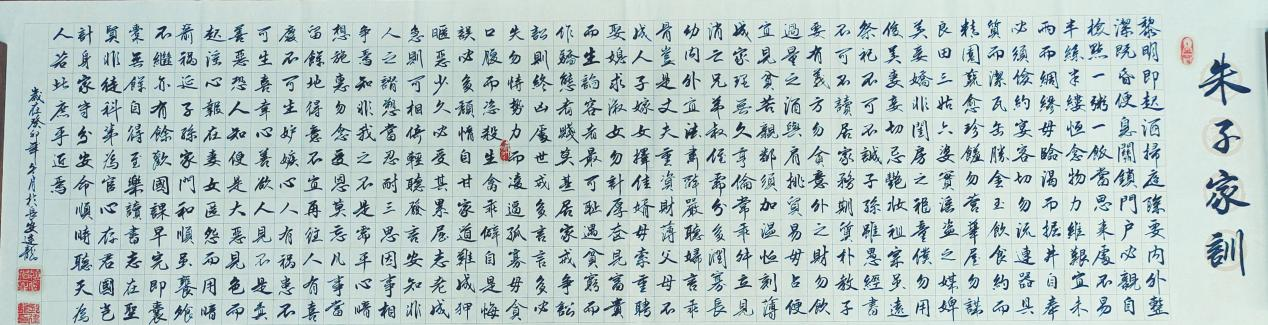 朱子家訓
黎明即起洒掃庭除要内外整
潔既昏便息關鎖門戶必親自
檢點一粥一飯當思來處不易
半絲半縷恒念物力維艱宜未
雨而綢繆毋臨渴而掘井自奉
必須儉約宴客切勿流連器具
質而潔瓦缶勝金玉飲食約而
精園蔬愈珍饈勿營華屋勿謀
良田三姑六婆實淫盜之媒婢
美妾嬌非閨房之福童僕勿用
俊美妻妾切忌艷妝祖宗雖遠
祭祀不可不誠子孫雖愚經書
不可不讀居家務期質朴教子
要有義方勿貪意外之財勿飲
過量之酒與肩挑貿易毋占便
宜見貧苦親鄰須加溫恤刻薄
成家理無久享倫常乖舛立見
消亡兄弟叔侄需分多潤寡長
幼内外宜法肅辭嚴聽婦言乖
骨豈是丈夫重資財薄父母不
成人子嫁女擇佳婿毋索重聘
娶媳求淑女勿計厚奩見富貴
而生諂容者最可恥遇貧窮而
作驕態者賤莫甚居家戒爭訟
訟則終凶處世戒多言言多必
失勿恃勢力而凌逼孤寡毋貪
口腹而恣殺生禽乖僻自是悔
誤必多頹惰自甘家道難成狎
暱惡少久必受其累屈志老成
急則可相倚輕聽發言安知非
人之譖愬當忍耐三思因事相
爭焉知非我之不是需平心暗
想施惠勿念受恩莫忘凡事當
留餘地得意不宜再往人有喜
慶不可生妒嫉心人有禍患不
可生喜幸心善欲人見不是真
善惡恐人知便是大惡見色而
起淫心報在妻女匿怨而用暗
箭禍延子孫家門和順雖饔飧
不繼亦有餘歡國課早完即囊
橐無餘自得至樂讀書志在聖
賢非徒科第為官心存君國豈
計身家守分安命順時聽天為
人若此庶乎近焉
歲在癸卯年 月於長安